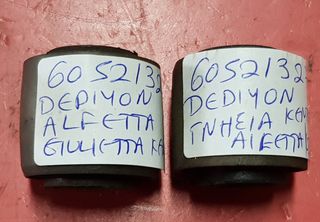 6052132
DEDIYON
ALFETTA
GIULIETTA
6052132
DEDIYON
ΓΝΗΣΙΑ
ALFETTA